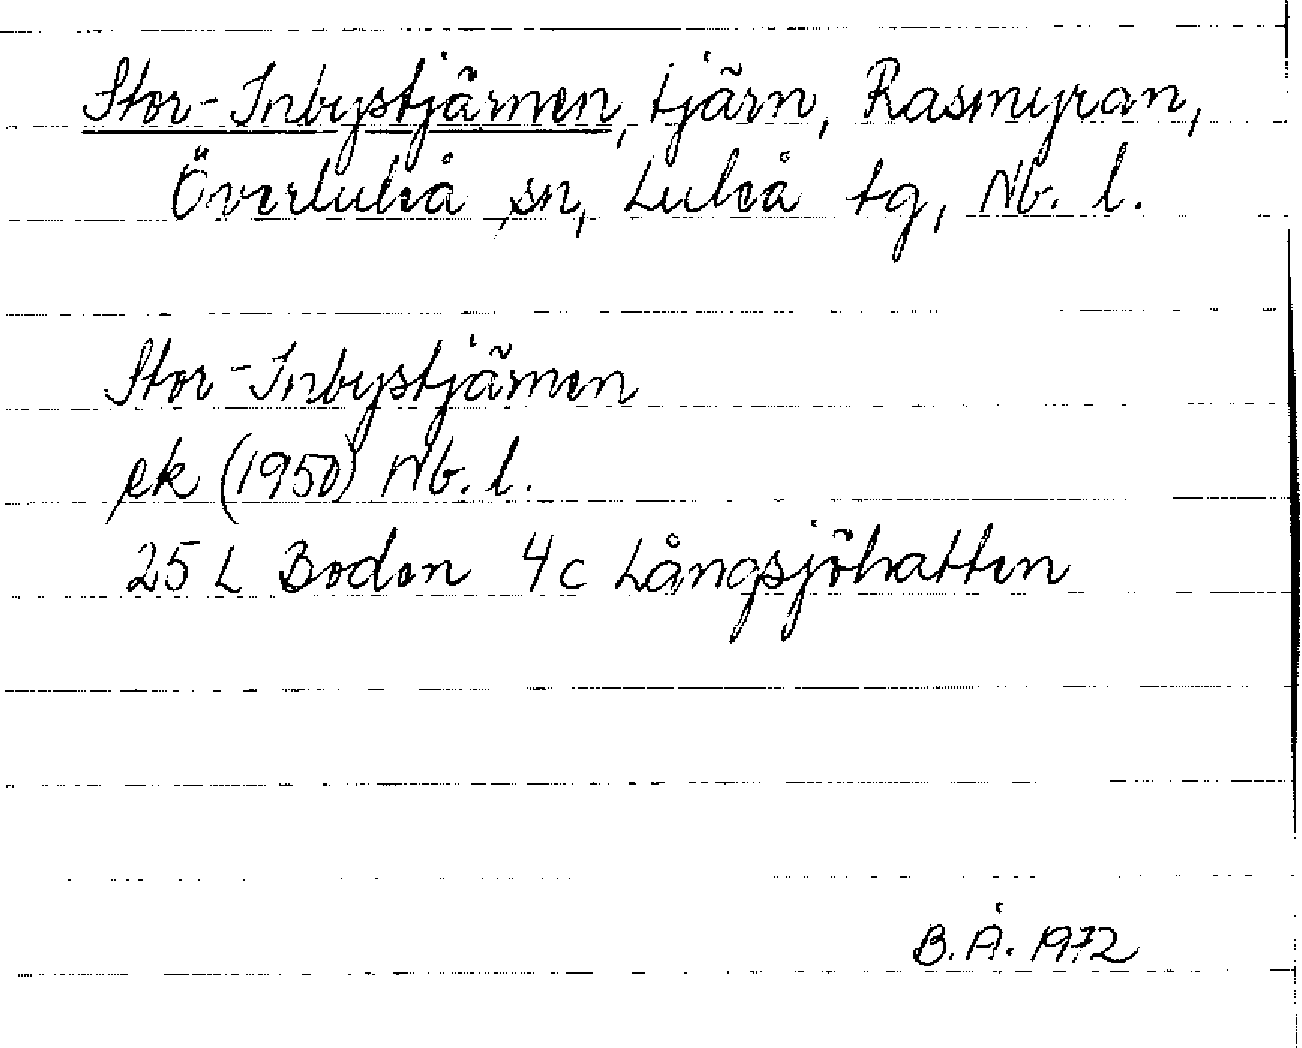 Stor-Inbystjärnen, tjärn, Rasmyran,
Överluleå sn, Luleå tg, Nb. l.
Stor-Inbystjärnen
ek (1950) Nb. l.
25 L Boden 4c Långsjöhatten
B.Å. 1972